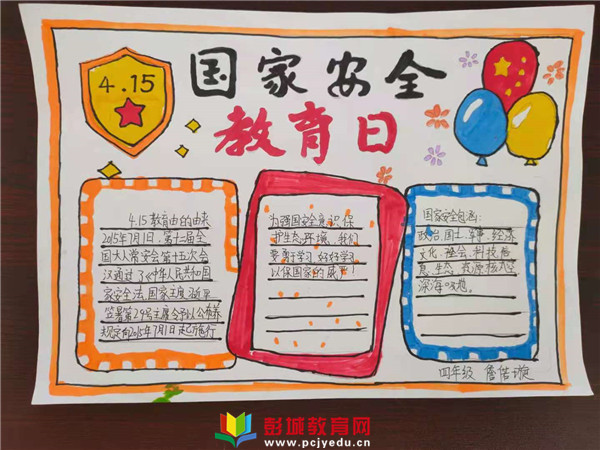 4.15
国家安全
教育日
4.15教育由的由来
2015年7月1日,第十二届全
国人大常安会第十五次会
议通过了《中华人民共和国
家安全法,国家主席习近平
签署第29号主席令予以公布
规定向2015年7月1日起施行
为强国安全意识,保
护生态环境,我们
要勇于学习,好好学习
以保国家的威严!
国家安全包涵:
政治,国土,军事,经济
文化,社会,科技,信
息,生态,资源核太空
深海
四年级 詹偌璇
彭城教育网
www.pcjyedu.cn